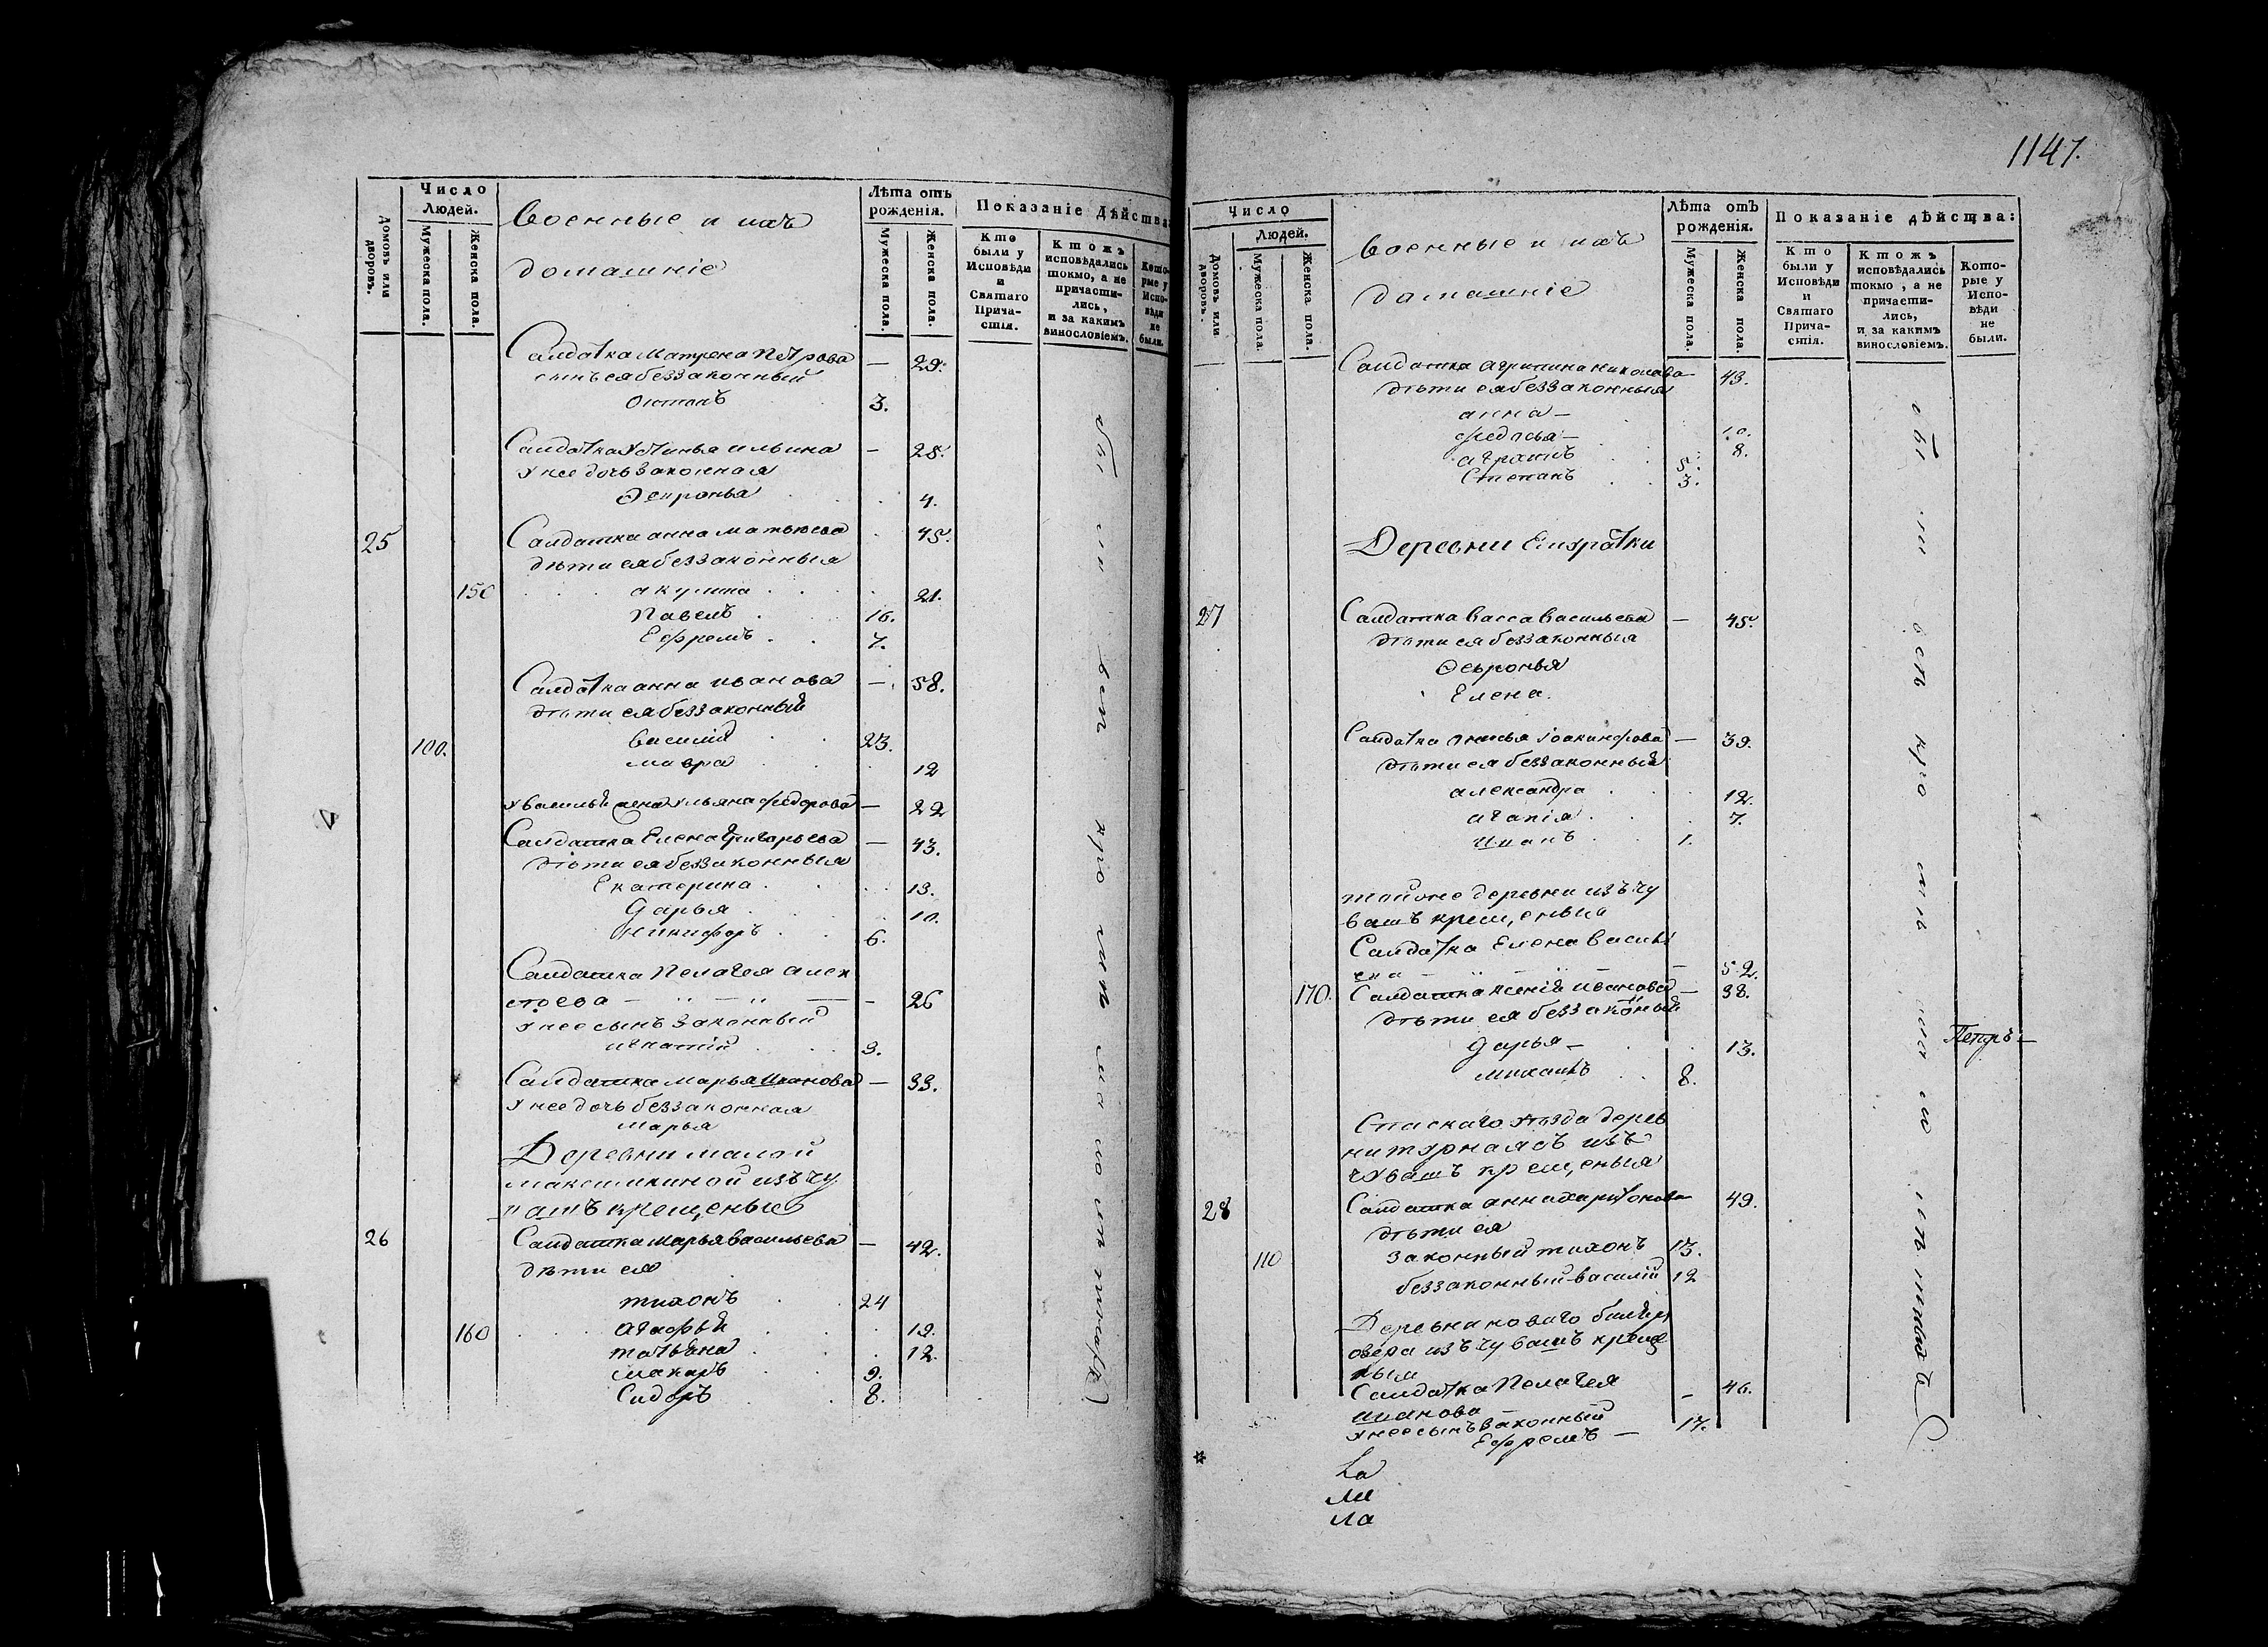 Домовъ или дворовъ.
Число Людей.
Мужеска пола.
Женска пола.
Военные и ихъ
домашніе
Лѣта отъ рожденія.
Мужеска пола.
Женска пола.
Показаніе Дѣйства
Кто были у Исповѣди и Святаго Прича- стія.
Ктожъ исповѣдались токмо, а не причасти- лись, и за какимъ винословіемъ.
Кото- рые у Испо- вѣди не были.
Салдатка Матрена Петрова — 29.
сынъ ея беззаконный
3.
Салдатка Устинья Ильина — 28.
у нее дочь законная
Ѳевронья 4.
25 Салдатка анна 45.
дѣти ея беззаконныя
150 акулина 21.
Павелъ 16.
Ефремъ 7.
Салдатка анна иванова — 58.
дѣти ея беззаконный
100. Василій 23.
мавра 12
ульяна федорова — 22
Салдатка Елена Григорьева — 43.
дѣти ея беззаконныя
Екатерина 13.
Дарья 10.
Никифоръ 6.
Салдатка Пелагея алек
сѣева — 26
у нее сынъ законный
игнатій 3.
Салдатка марья Иванова — 33.
у нее дочь беззаконная
марья
Деревни малой
максимкиной изъ чу
вашъ крещеные
26 Салдатка марья васильева — 42.
дѣти ея
тихонъ 24
160 агафья 19.
татьяна 12.
макаръ 9.
Сидоръ 8.
1147.
Число Людей.
Домовъ или дворовъ.
Мужеска пола.
Женска пола.
Военные и ихъ
домашніе
Лѣта отъ рожденія.
Мужеска пола.
Женска пола.
Показаніе дѣйства:
Кто были у Исповѣди и Святаго Прича- стія.
Ктожъ исповѣдались токмо, а не причасти- лись, и за какимъ винословіемъ.
Кото- рые у Испо- вѣди не были.
Салдатка агрипина николаева 43.
дѣти ея беззаконныя
анна —
федосья — 10.
8.
5.
Степанъ 3.
Деревни
27 Салдатка васса васильева — 45.
дѣти ея беззаконныя
Ѳевронья
Елена.
Салдатка анисья — 39.
дѣти ея беззаконный
александра 12.
агапія 7.
Иванъ 1.
той же деревни изъ чу
вашъ крещеныя
Салдатка Елена василь
ева — 52.
170. Салдатка ксенія иванова — 38.
дѣти ея беззаконный
Дарья — 13.
михаилъ 8.
Петръ —
Спаскаго уѣзда дерев
ни изъ
чувашъ крещеныя
28 Салдатка анна харитонова 49.
дѣти ея
110 законный тихонъ 13.
беззаконный василій 12
Деревни новаго
озера изъ чувашъ креще
ныи
Салдатка Пелагея — 46.
иванова —
у нее сынъ законный
Ефремъ — 17.